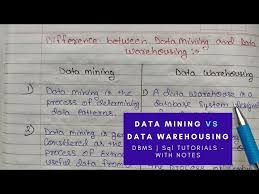 Difference between Data Mining and Data
Warehousing :-
Data mining
Data Warehousing
1) Data mining is the
process of determining
data patterns.
1) A data warehouse is a
database system
2) Data mining is
considered as the
process of
useful data from
DATA MINING VS
DATA WAREHOUSING
DBMS | Sql TUTORIALS -
WITH NOTES